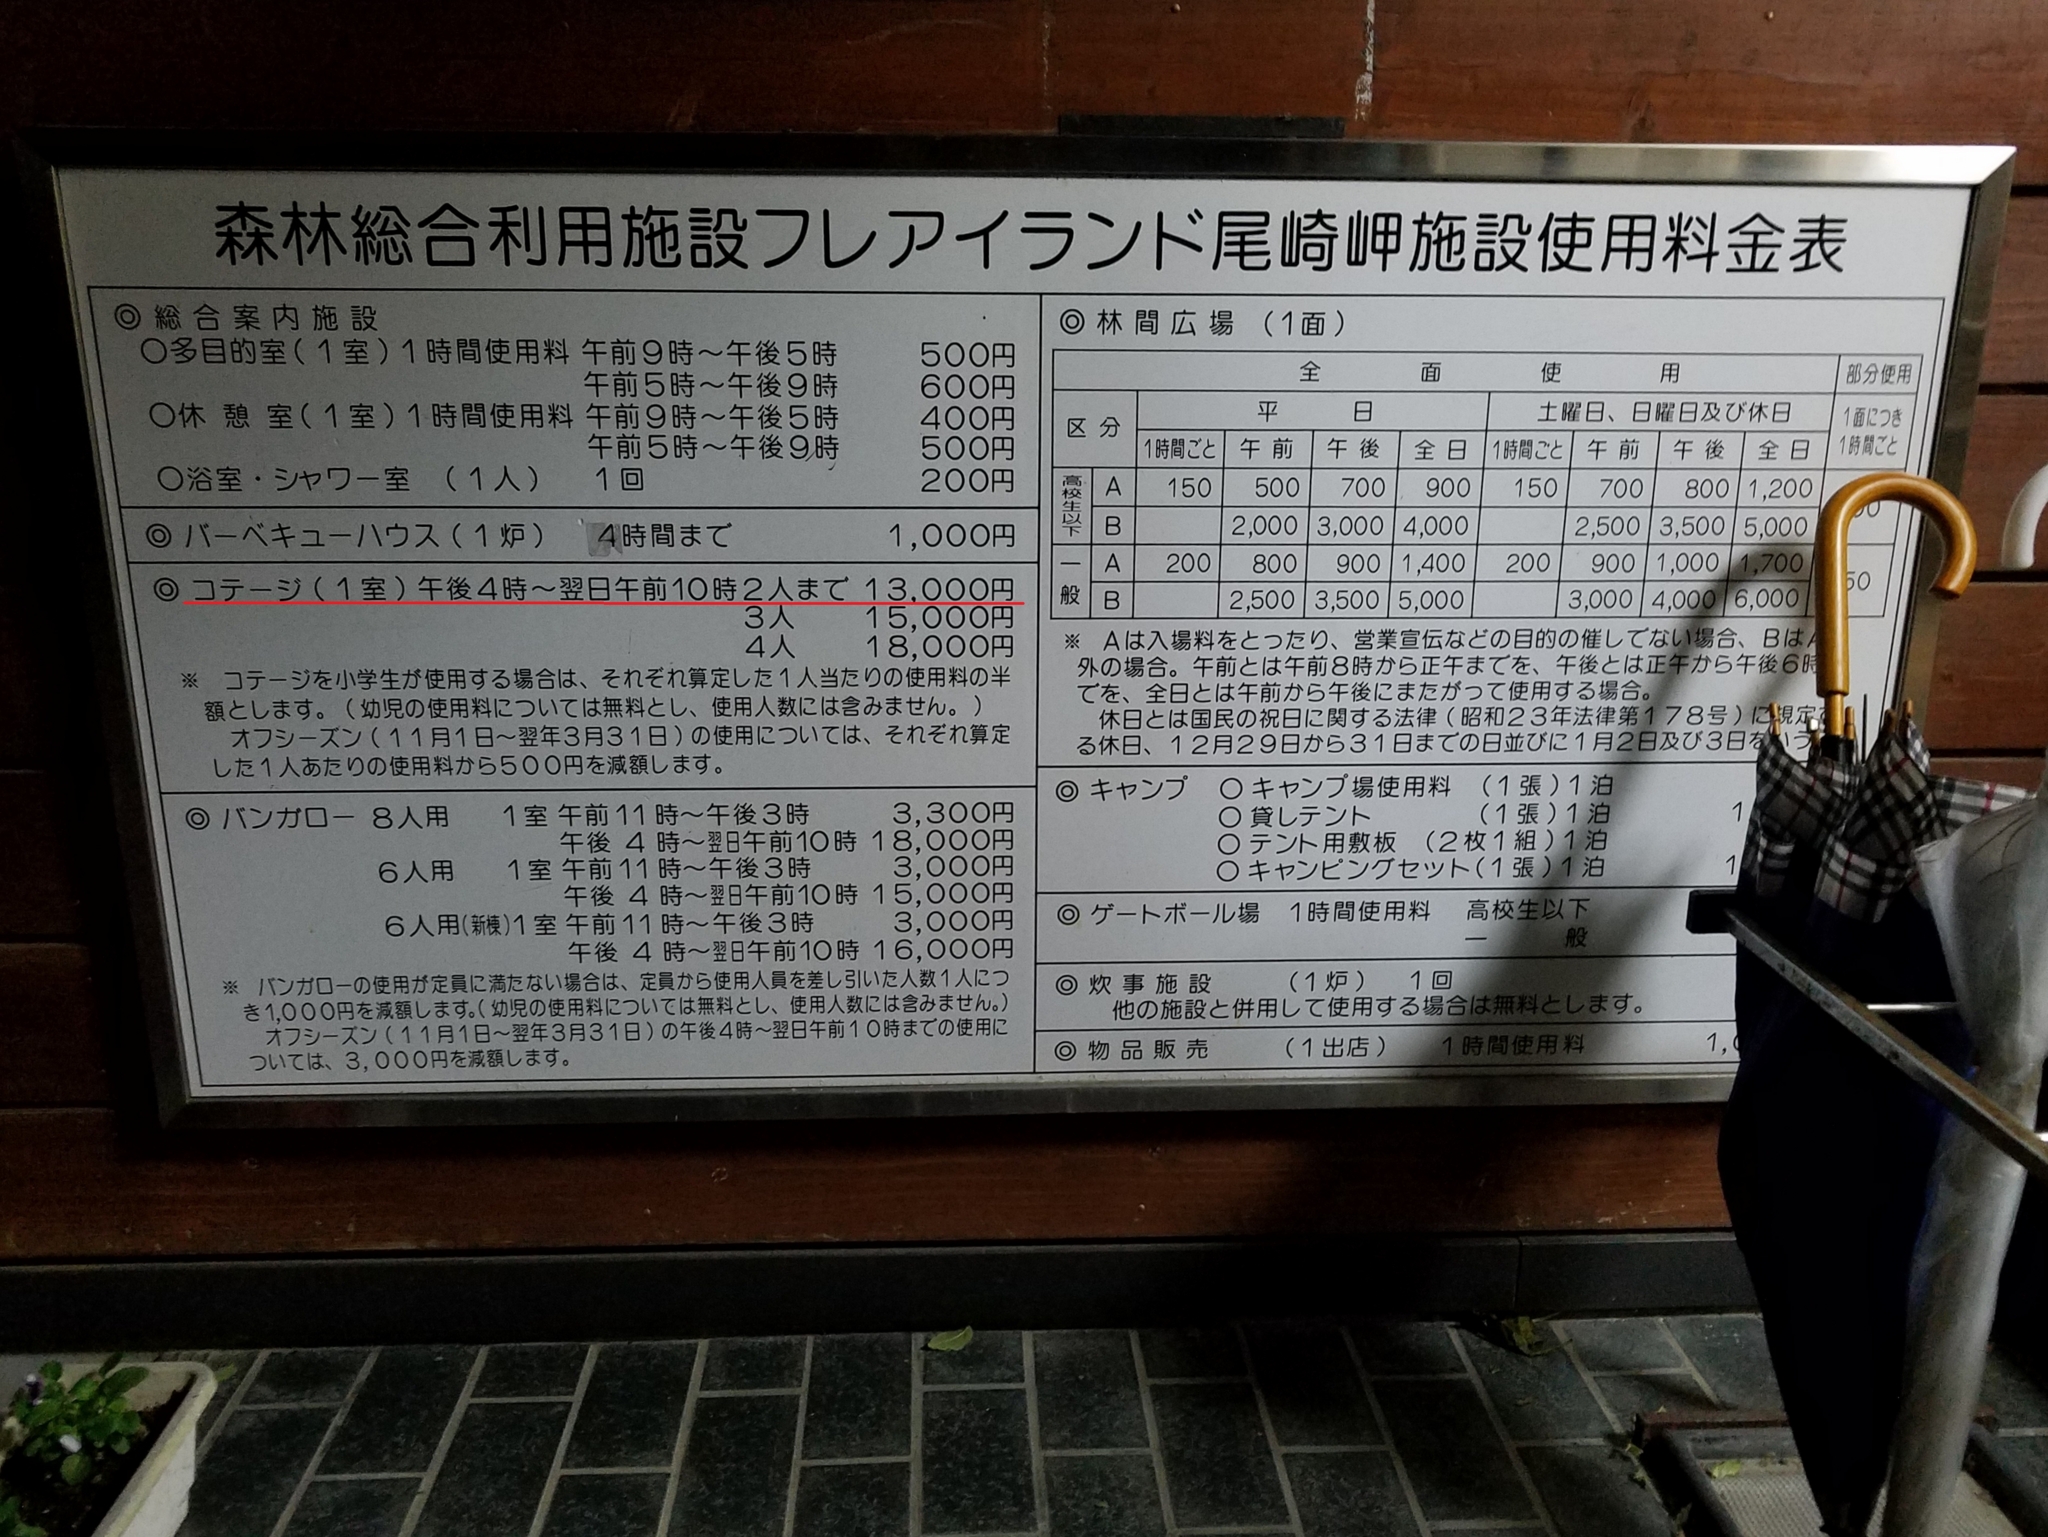 森林総合利用施設フレアイランド尾崎岬施設使用料金表
◎ 総合案内施設
○多目的室(1室)1時間使用料 午前9時~午後5時 500円
午前5時~午後9時 600円
○休憩室(1室)1時間使用料 午前9時~午後5時 400円
午前5時~午後9時 500円
○浴室・シャワー室 (1人) 1回 200円
◎ バーベキューハウス(1炉) 4時間まで 1,000円
◎ コテージ(1室)午後4時~翌日午前10時2人まで 13,000円
3人 15,000円
4人 18,000円
※ コテージを小学生が使用する場合は、それぞれ算定した1人当たりの使用料の半
額とします。(幼児の使用料については無料とし、使用人数には含みません。)
オフシーズン(11月1日~翌年3月31日)の使用については、それぞれ算定
した1人あたりの使用料から500円を減額します。
◎ バンガロー 8人用 1室 午前11時~午後3時 3,300円
午後4時~翌日午前10時 18,000円
6人用 1室 午前11時~午後3時 3,000円
午後4時~翌日午前10時 15,000円
6人用(新棟)1室 午前11時~午後3時 3,000円
午後4時~翌日午前10時 16,000円
※ バンガローの使用が定員に満たない場合は、定員から使用人員を差し引いた人数1人につ
き1,000円を減額します。(幼児の使用料については無料とし、使用人数には含みません。)
オフシーズン(11月1日~翌年3月31日)の午後4時~翌日午前10時までの使用に
ついては、3,000円を減額します。
◎ 林間広場 (1面)
全面使用 部分使用
区分 平日 土曜日、日曜日及び休日 1面につき
1時間ごと
1時間ごと 午前 午後 全日 1時間ごと 午前 午後 全日
高校生以下 A 150 500 700 900 150 700 800 1,200
B 2,000 3,000 4,000 2,500 3,500 5,000
一般 A 200 800 900 1,400 200 900 1,000 1,700
B 2,500 3,500 5,000 3,000 4,000 6,000
※ Aは入場料をとったり、営業宣伝などの目的の催しでない場合、BはA
外の場合。午前とは午前8時から正午までを、午後とは正午から午後6時
でを、全日とは午前から午後にまたがって使用する場合。
休日とは国民の祝日に関する法律(昭和23年法律第178号)に規定す
る休日、12月29日から31日までの日並びに1月2日及び3日をいう
◎ キャンプ ○ キャンプ場使用料 (1張)1泊
○ 貸しテント (1張)1泊
○ テント用敷板 (2枚1組)1泊
○ キャンピングセット(1張)1泊
◎ ゲートボール場 1時間使用料 高校生以下
一般
◎ 炊事施設 (1炉) 1回
他の施設と併用して使用する場合は無料とします。
◎ 物品販売 (1出店) 1時間使用料